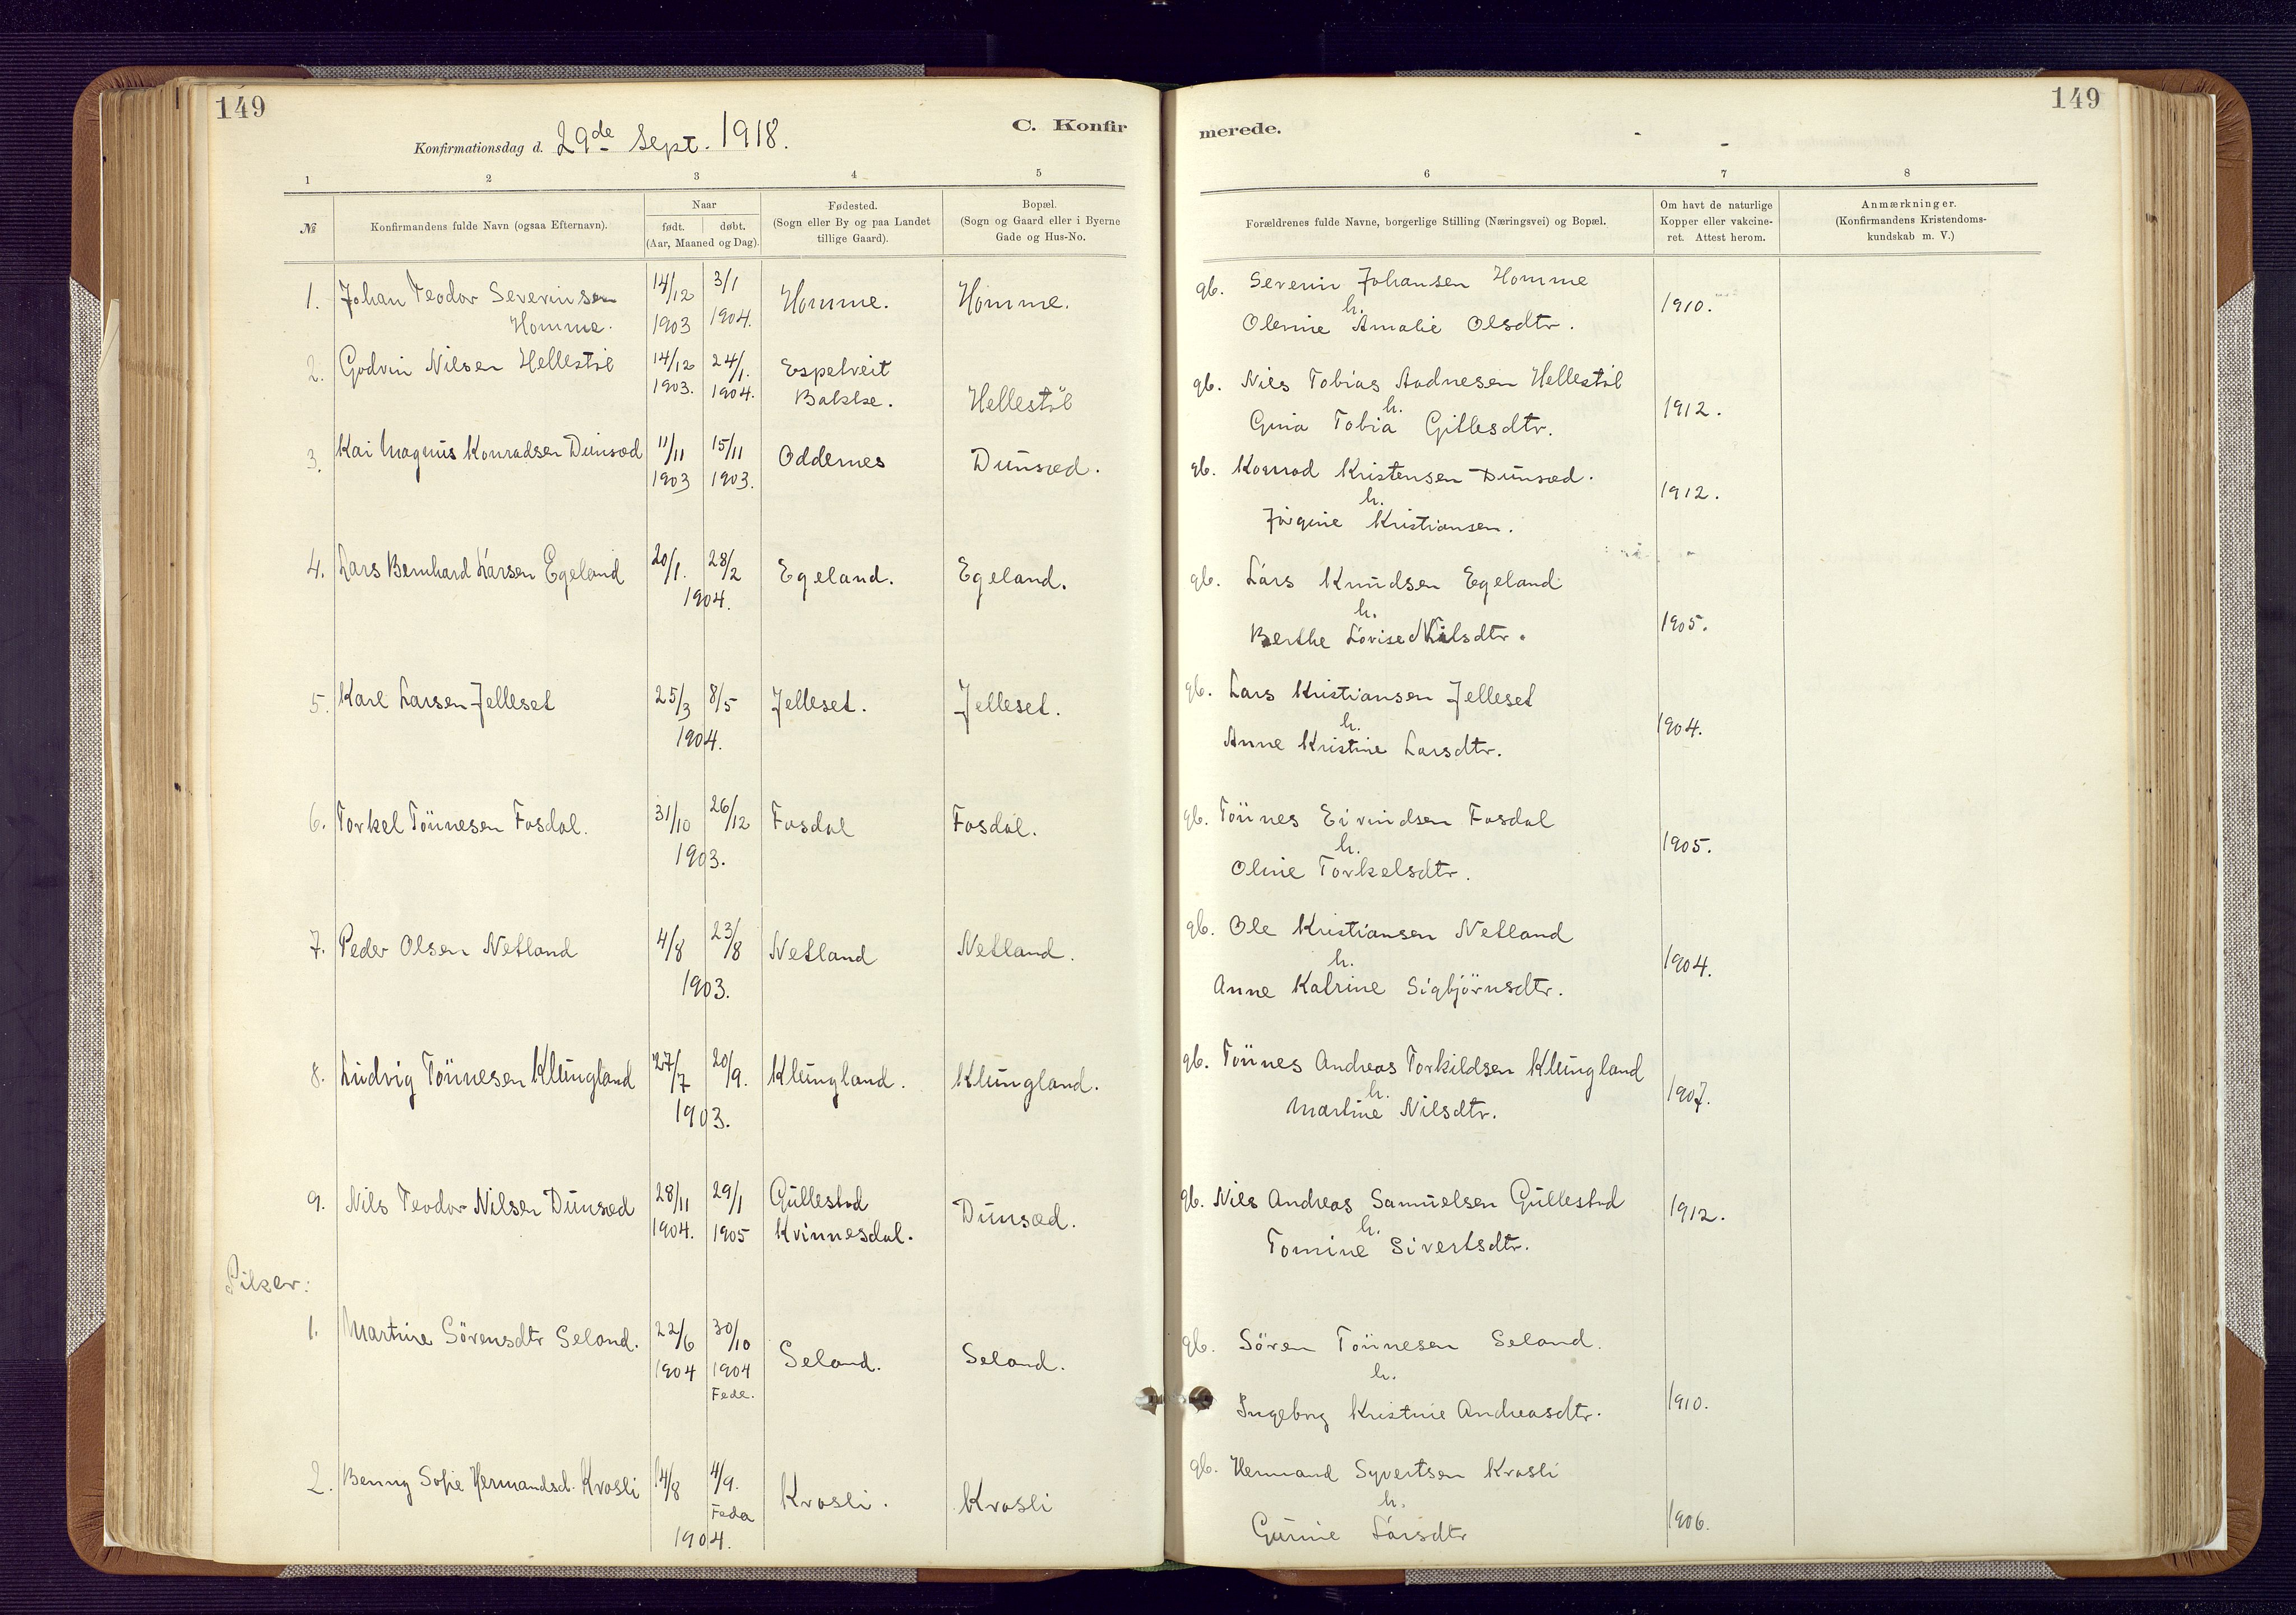 149
149
Konfirmationsdag d. 29de Sept. 1918.
C. Konfir
merede.
1 2 3 4 5
6 7 8
№
Konfirmandens fulde Navn (ogsaa Efternavn).
Naar
født. døbt.
(Aar, Maaned og Dag).
Fødested.
(Sogn eller By og paa Landet
tillige Gaard).
Bopæl.
(Sogn og Gaard eller i Byerne
Gade og Hus-No.
Forældrenes fulde Navne, borgerlige Stilling (Næringsvei) og Bopæl.
Om havt de naturlige
Kopper eller vakcine-
ret. Attest herom.
Anmærkninger.
(Konfirmandens Kristendoms-
kundskab m. V.)
1. Johan Teodor Severinsen 14/12 3/1 Homme. Homme. gb. Severin Johansen Homme
Homme. 1903 1904. h. 1910.
Olenie Amalie Olsdtr.
2. Godvin Nilsen Hellestöl 14/12 24/1. Espetveit gb. Nils Tobias Aadnesen Hellestöl
1903. 1904. Bakke. Hellestöl h. 1912.
Gina Tobia Gitlesdtr.
3. Kai Magnus Konradsen Dunsæd 11/11 15/11 Oddernes Dunsæd. gb. Konrad Kristensen Dunsæd.
1903 1903. h. 1912.
Jörgine Kristiansen.
4. Lars Bernhard Larsen Egeland 20/1. 28/2 Egeland. Egeland. gb. Lars Knudsen Egeland
1904. h. 1905.
Berthe Lovise Nilsdtr.
5. Karl Larsen Jelleset 25/3 8/5 Jelleset. Jelleset. gb. Lars Kristiansen Jelleset
1904. h. 1904.
Anne Kristine Larsdtr.
6. Torkel Tönnesen Fosdal. 31/10 26/12 Fosdal Fosdal. gb. Tönnes Eivindsen Fosdal
1903. h. 1905.
Oline Torkelsdtr.
7. Peder Olsen Netland 4/8 23/8 Netland Netland. gb. Ole Kristiansen Netland
1903. h. 1904.
Anne Katrine Sigbjörnsdtr.
8. Ludvig Tönnesen Klungland 27/7 20/9. Klungland. Klungland. gb. Tönnes Andreas Torkildsen Klungland
1903. h. 1907.
Martine Nilsdtr.
9. Nils Teodor Nilsen Dunsæd 28/11 29/1 Gullestad gb. Nils Andreas Samuelsen Gullestad
1904. 1905 Kvinnesdal. Dunsæd. h. 1912.
Tomine Sivertsdtr.
Piker:
1. Martine Sörensdtr Seland. 22/6 30/10 Seland. Seland. gb. Sören Tönnesen Seland.
1904 1904 h. 1910.
Fede. Ingeborg Kristine Andreasdtr.
2. Benny Sofie Hermandsd. Kvosli 14/8 4/9. Kvosli. Kvosli gb. Hermand Syvertsen Kvosli
Feda h. 1906.
1904. Gunnie Larsdtr